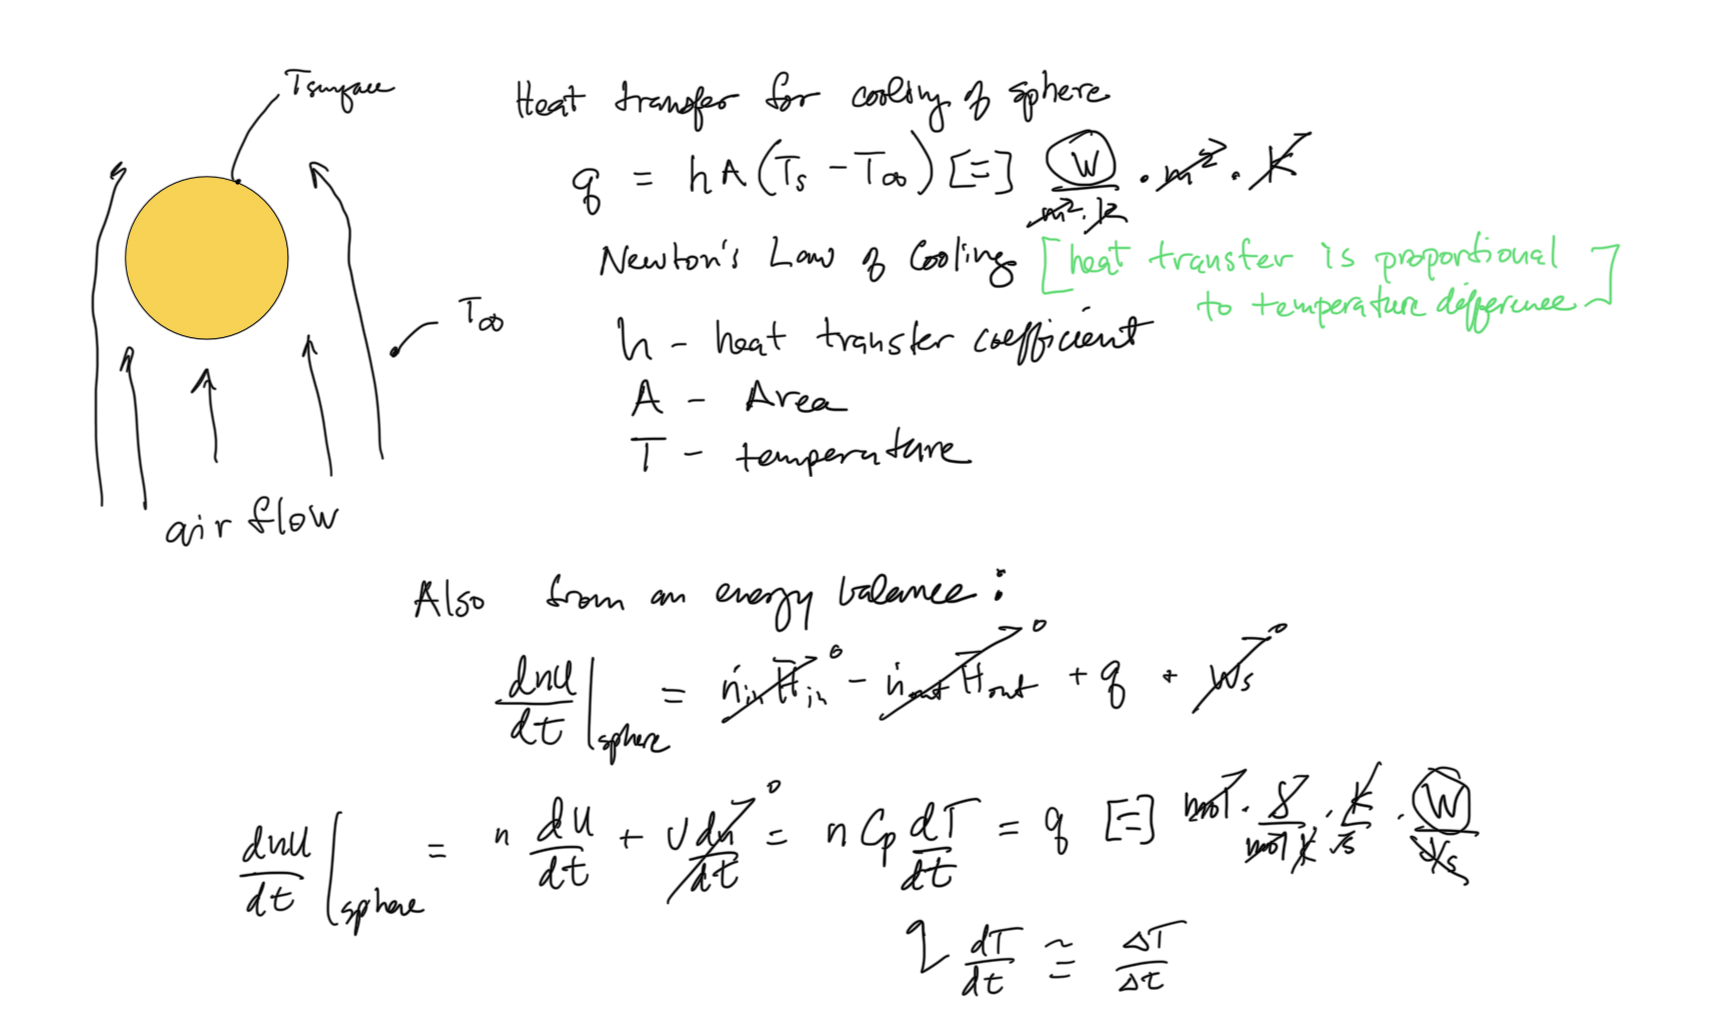 Tsurface
Heat transfer for cooling of sphere
q = hA(Ts - T∞) [=] W/m²·K · m² · K
Newton's Law of Cooling [heat transfer is proportional
to temperature difference]
T∞
h - heat transfer coefficient
A - Area
T - temperature
air flow
Also from an energy balance:
dnU/dt |sphere = ṅin H̅in⁰ - ṅout H̅out⁰ + q + Ws⁰
dnU/dt |sphere = n dU/dt + U dn/dt⁰ = n Cp dT/dt = q [=] mol · J/mol K · K/s · W/J/s
dT/dt ≅ ΔT/Δt